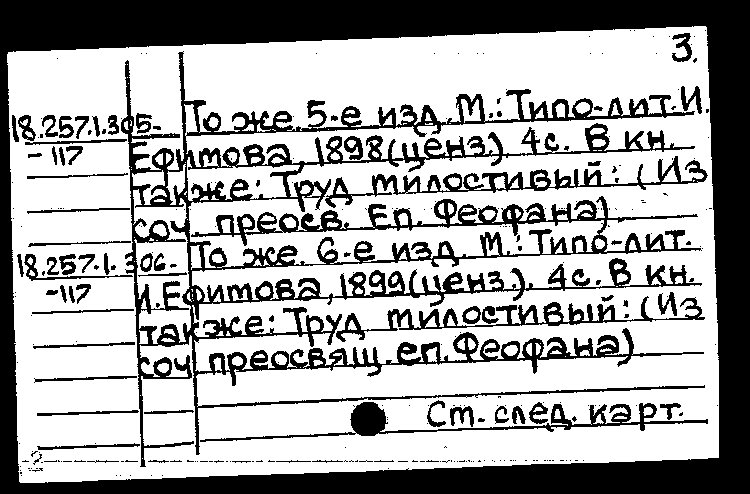 3.
18.257.1.305- То же. 5-е изд. М.: Типо-лит. И.
-117 Ефимова, 1898(ценз.). 4с. В кн.
также: Труд милостивый: (Из
соч. преосв. Еп. Феофана).
18.257.1.306- То же. 6-е изд. М.: Типо-лит.
-117 И.Ефимова, 1899(ценз.). 4с. В кн.
также: Труд милостивый: (Из
соч преосвящ. еп. Феофана)
Ст. след. карт.
2